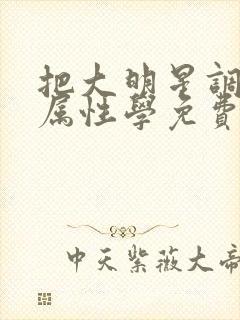 把大明星調
属性學免費
中天紫薇大帝